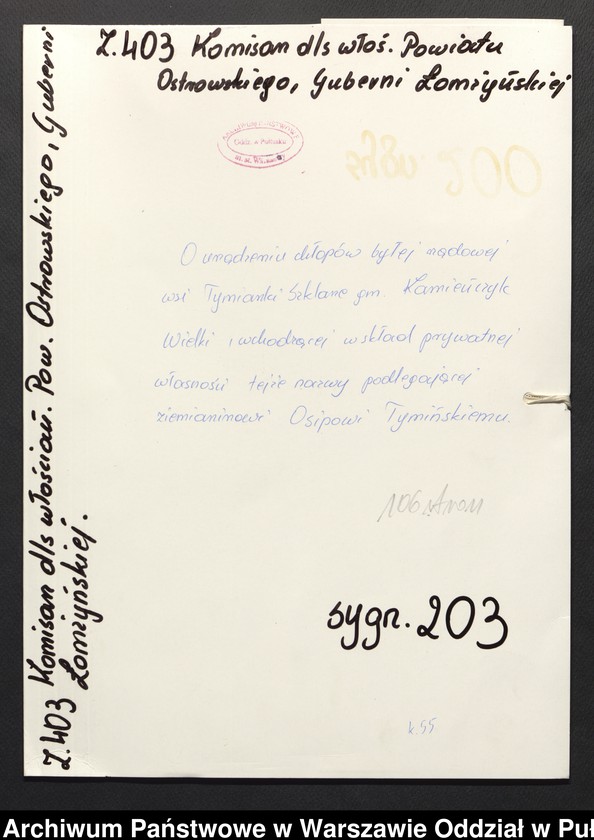 Z.403 Komisarz dls włoś. Powiatu
Ostrowskiego, Guberni Łomżyńskiej
Z.403 Komisarz dls włościań. Pow. Ostrowskiego, Guberni
Łomżyńskiej.
Oddz. w Pułtusku
O urządzeniu chłopów byłej rządowej
wsi Tymianki Szklane gm. Kamieńczyk
Wielki i wchodzącej w skład prywatnej
własności tejże nazwy podlegającej
ziemianinowi Osipowi Tymińskiemu.
106
sygn. 203
k.55
Archiwum Państwowe w Warszawie Oddział w Puł